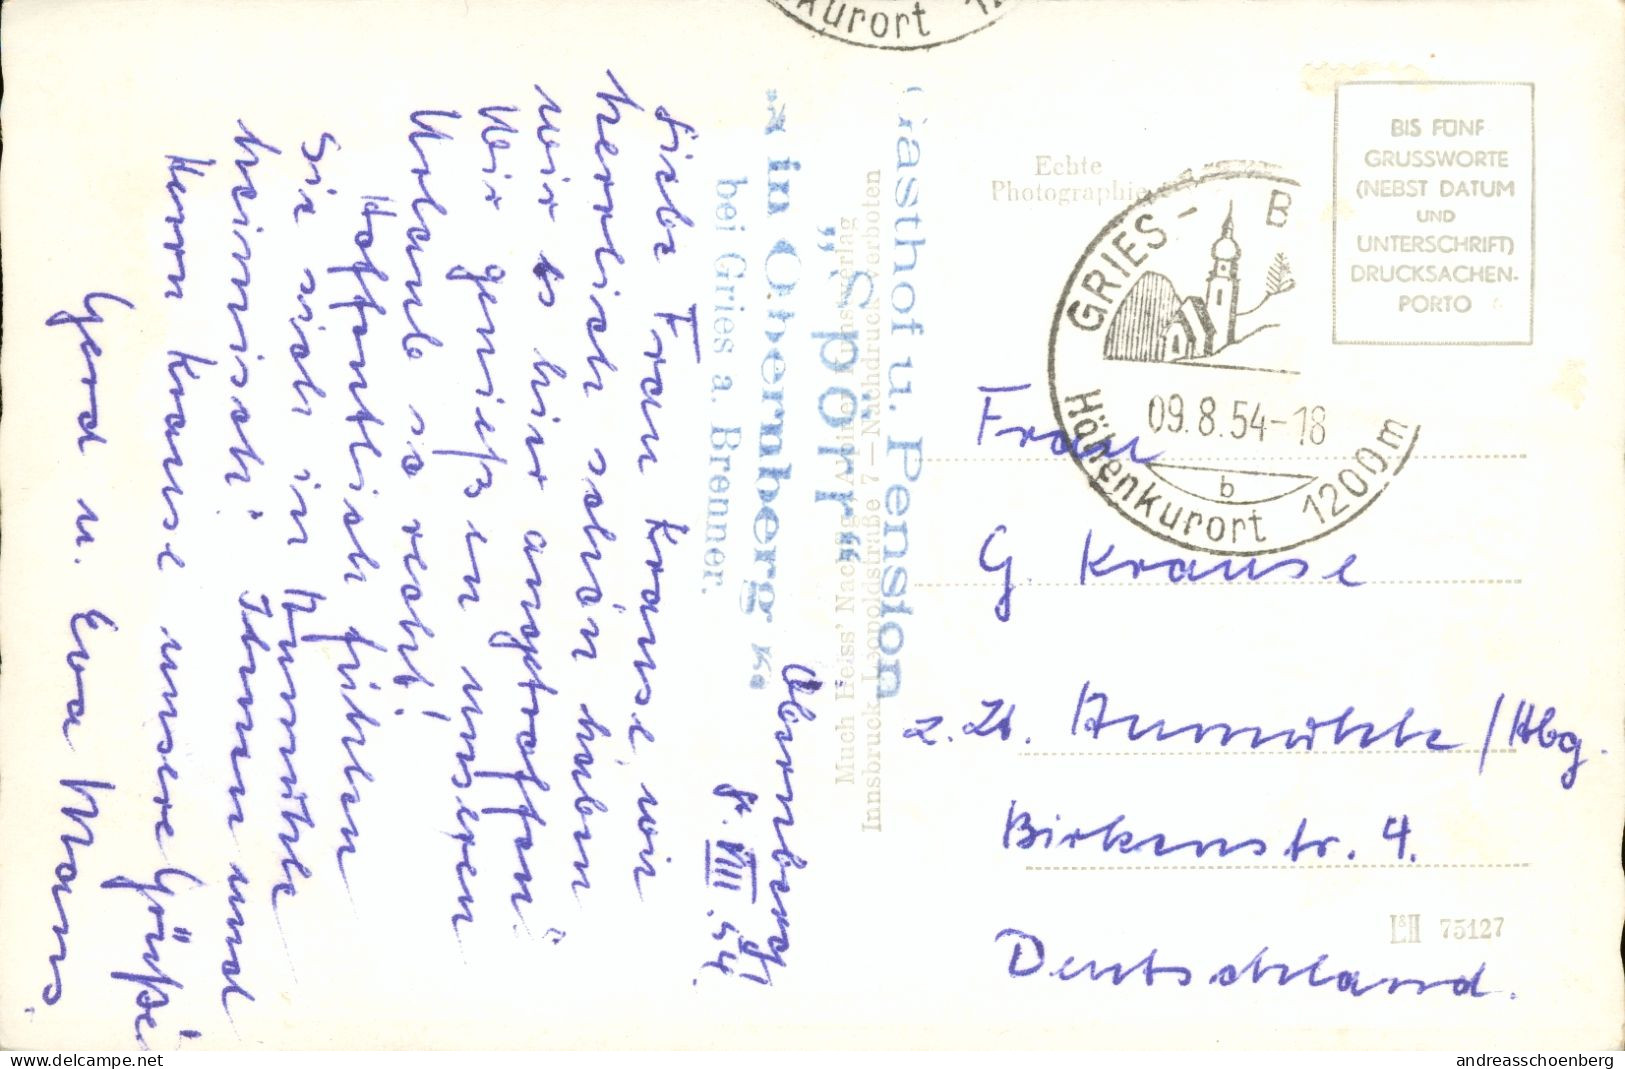 Obernberg,
8. VIII. 54.
Liebe Frau Krause, wir
herrlich schön haben
wir es hier angetroffen!
Wir genießen unseren
Urlaub so recht!
Hoffentlich fühlen
Sie sich in Aumühle
heimisch! Ihnen und
Herrn Krause unsere Grüße!
Gerd u. Eva Mans.
Gasthof u. Pension
„Spörr“
in Obernberg
bei Gries a. Brenner.
Much Heiss' Nachflg., Alpiner Kunstverlag
Innsbruck, Leopoldstraße 7 — Nachdruck verboten
kurort 12
Echte
Photographie
GRIES - B
09.8.54-18
b
Höhenkurort 1200m
BIS FÜNF
GRUSSWORTE
(NEBST DATUM
UND
UNTERSCHRIFT)
DRUCKSACHEN-
PORTO
Frau
G. Krause
z. Zt. Aumühle/Hbg.
Birkenstr. 4.
Deutschland.
L&H 75127
www.delcampe.net
andreasschoenberg